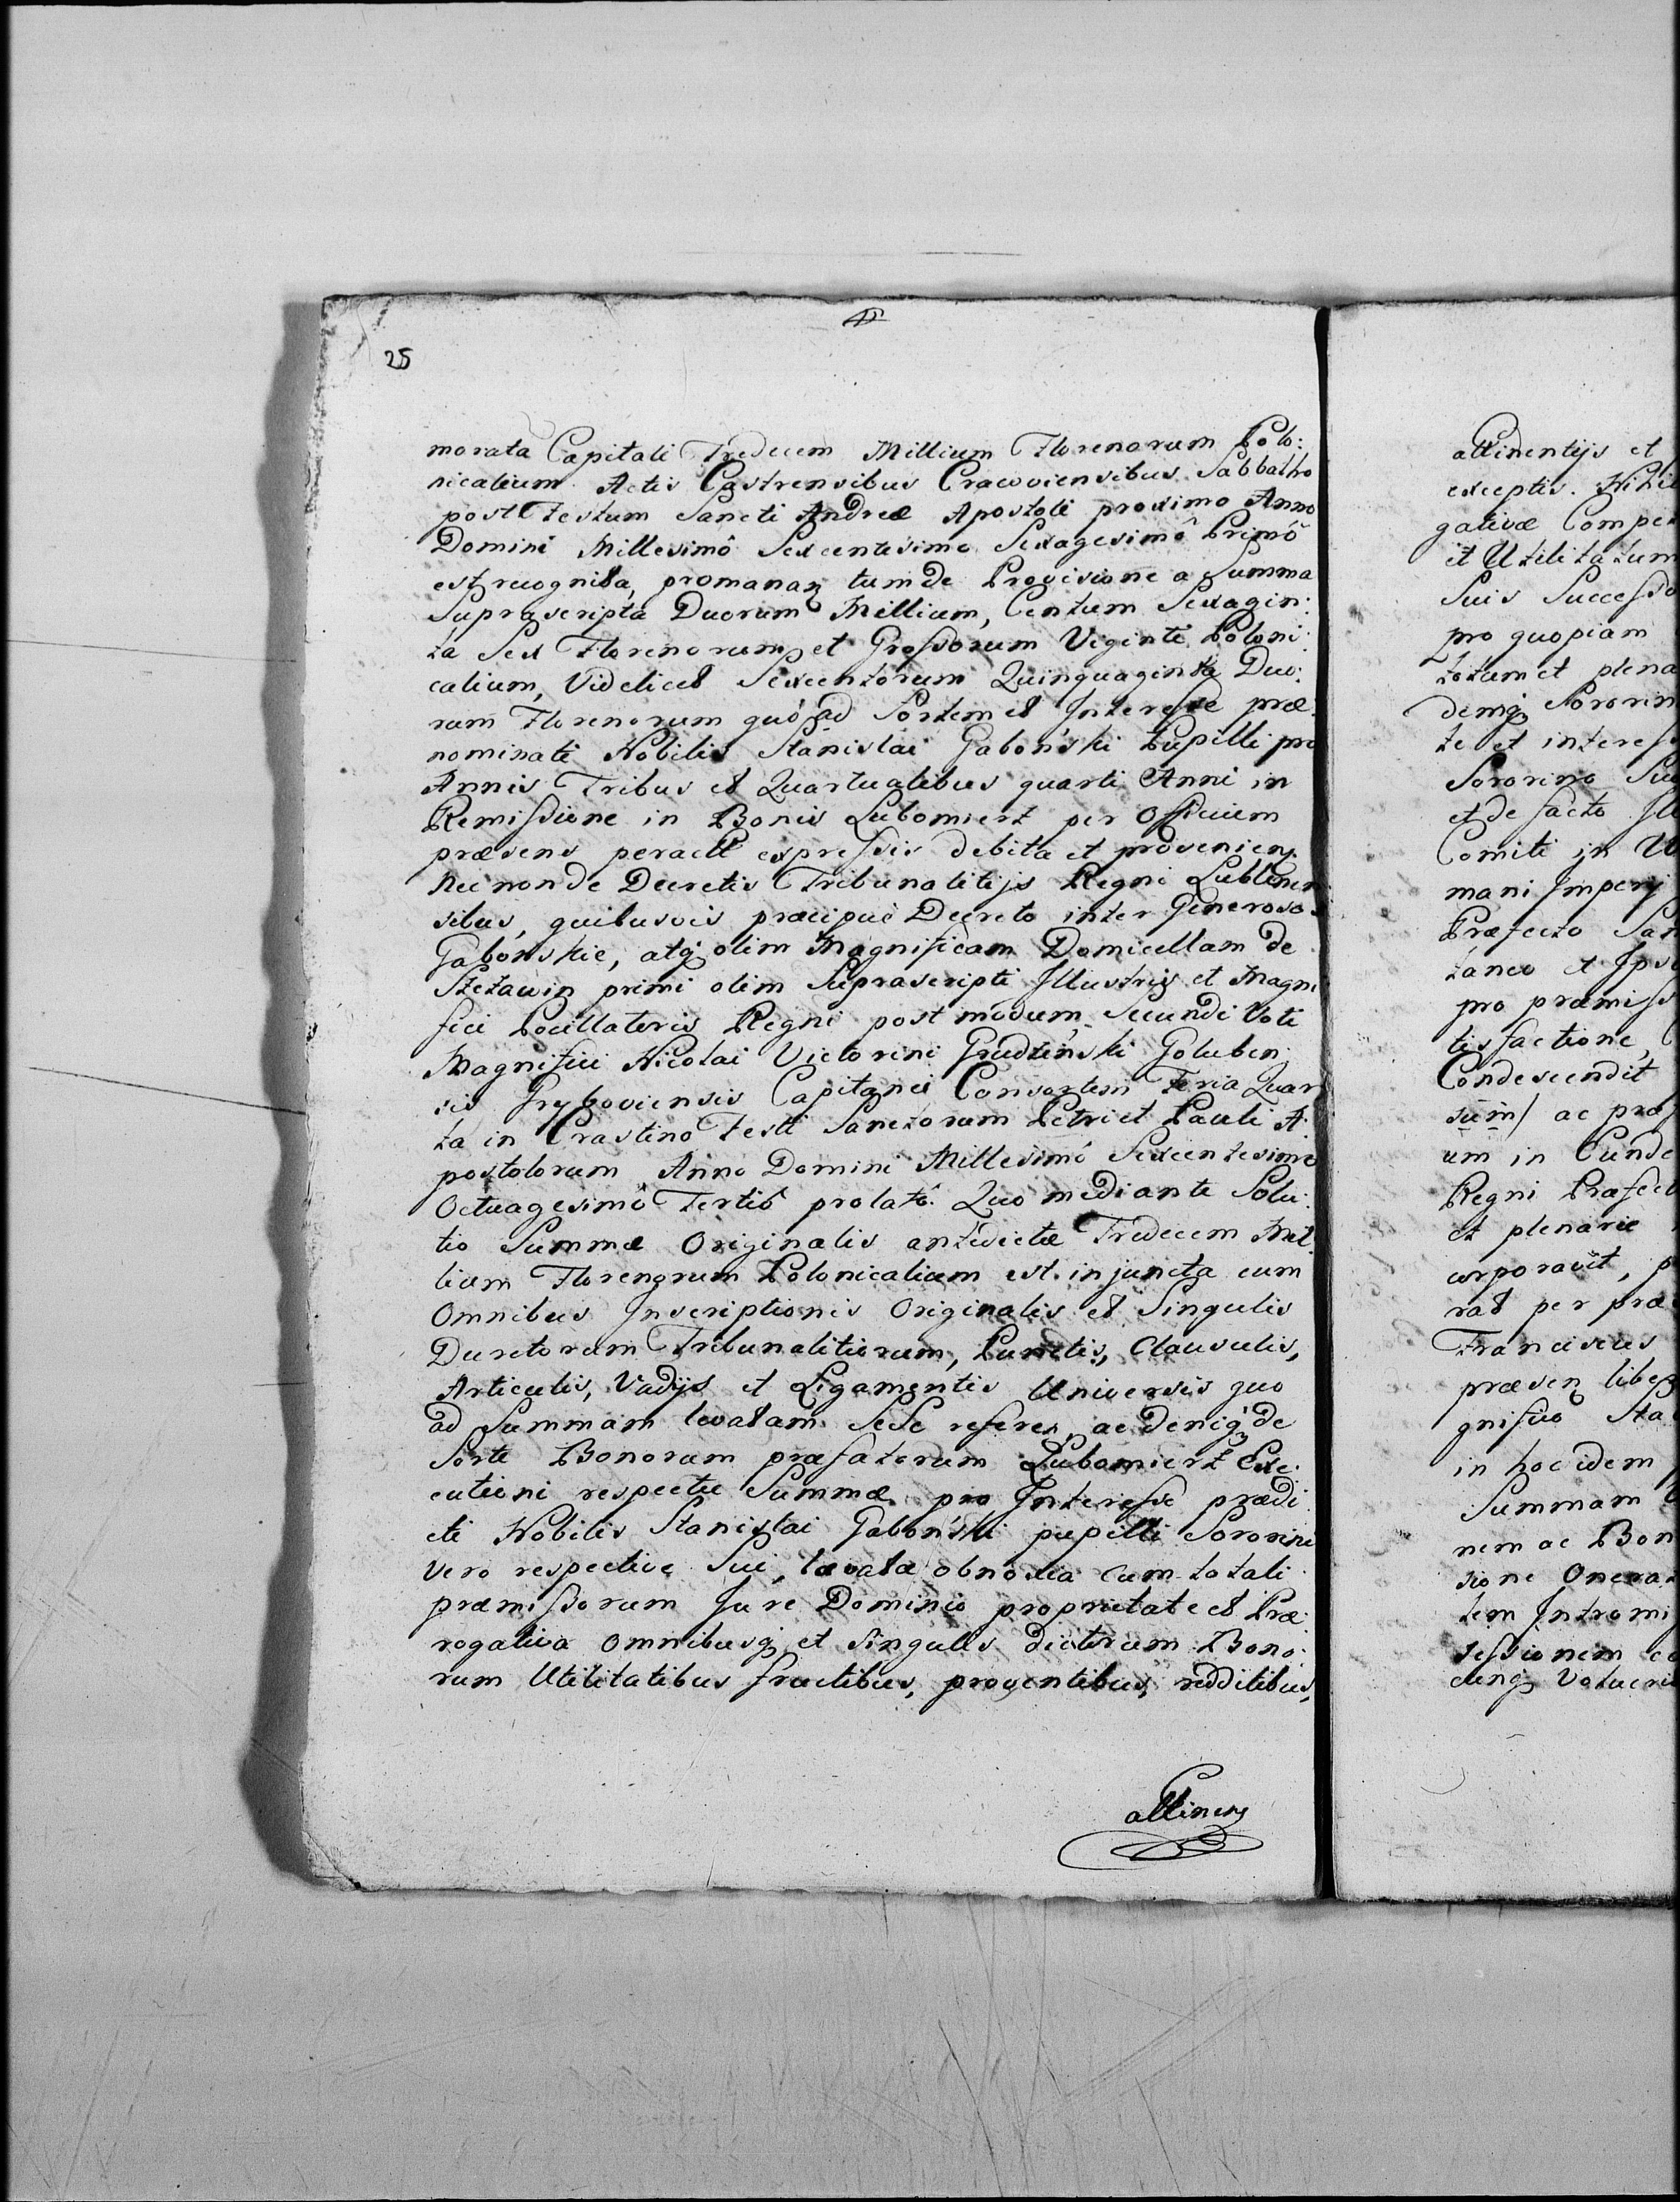 25
morata Capitali Tredecem Millium Florenorum Polo:
nicalium Actis Castrensibus Cracoviensibus Sabbatho
post Festum Sancti Andreæ Apostoli proximo Anno
Domini Millesimô Sexcentesimo Sexagesimô Primô
est recognita, promanan tum de Provisione a Summa
Suprascripta Duorum Millium, Centum Sexagin:
ta Sex Florenorum et Grossorum Viginti Poloni:
calium, Videlicet Sexcentorum Quinquaginta Duo:
rum Florenorum quô ad Sortem et Interesse præ
nominati Nobilis Stanislai Gaboński Pupilli pro
Annis Tribus et Quartualibus quarti Anni in
Remissione in Bonis Lubomierz per Officium
præsens peracti expressis debita et provenien
Nec non de Decretis Tribunalitijs Regni Lublinen
sibus, quibusvis præcipuè Decreto inter Generosos
Gabońskie, atq olim Magnificam Domicellam de
primi olim Suprascripti Illustris et Magni
fici Pocillatoris Regni post modum Secundi Voti
Magnifici Nicolai Victorini Grudziński Goluben:
sis Gryboviensis Capitanei Consortem Feria Quar
ta in Crastino Festi Sanctorum Petri et Pauli A:
postolorum Anno Domini Millesimô Sexcentesimo
Octuagesimô Tertiô prolatô. Quo mediante Solu:
tio Summæ Originalis antedictæ Tredecem Mil
lium Florenorum Polonicalium est injuncta cum
Omnibus Inscriptionis Originalis et Singulis
Decretorum Tribunalitiorum, Punctis, Clausulis,
Articulis, Vadijs et Ligamentis Universis quo
ad Summam levatam Sese referen, ac deniq de
Sorte Bonorum præfatorum Lubomierz Exe:
cutioni respectu Summæ pro Interesse prædi
cti Nobilis Stanislai Gaboński pupilli Sororini
vero respective Sui, lævatæ obnoxia cum totali
præmissorum Jure Dominio proprietate et Præ:
rogativa Omnibusq et Singulis dictorum Bono:
rum Utilitatibus fructibus, proventibus, redditibus,
attinen
attinentijs et
exceptis. Nihil
gativæ Compe
et Utilitatum
Suis Successo
pro quopiam
totum et plena
deniq Sororin
te et interess
Sororino Su
et de facto Ill
Comiti in W
mani Imperij
Præfecto San
taneo et Ips
pro præmiss
tisfactione,
Condescendit
sum/ ac præ
um in Cunde
Regni Præfec
et plenarie
corporavit, p
rat per præ
Franciscus
præsen libe
gnifico Sta
in hoc idem
Summam
nem ac Bon
sione Onera
tem Intromi
sessionem
cunq Volueri